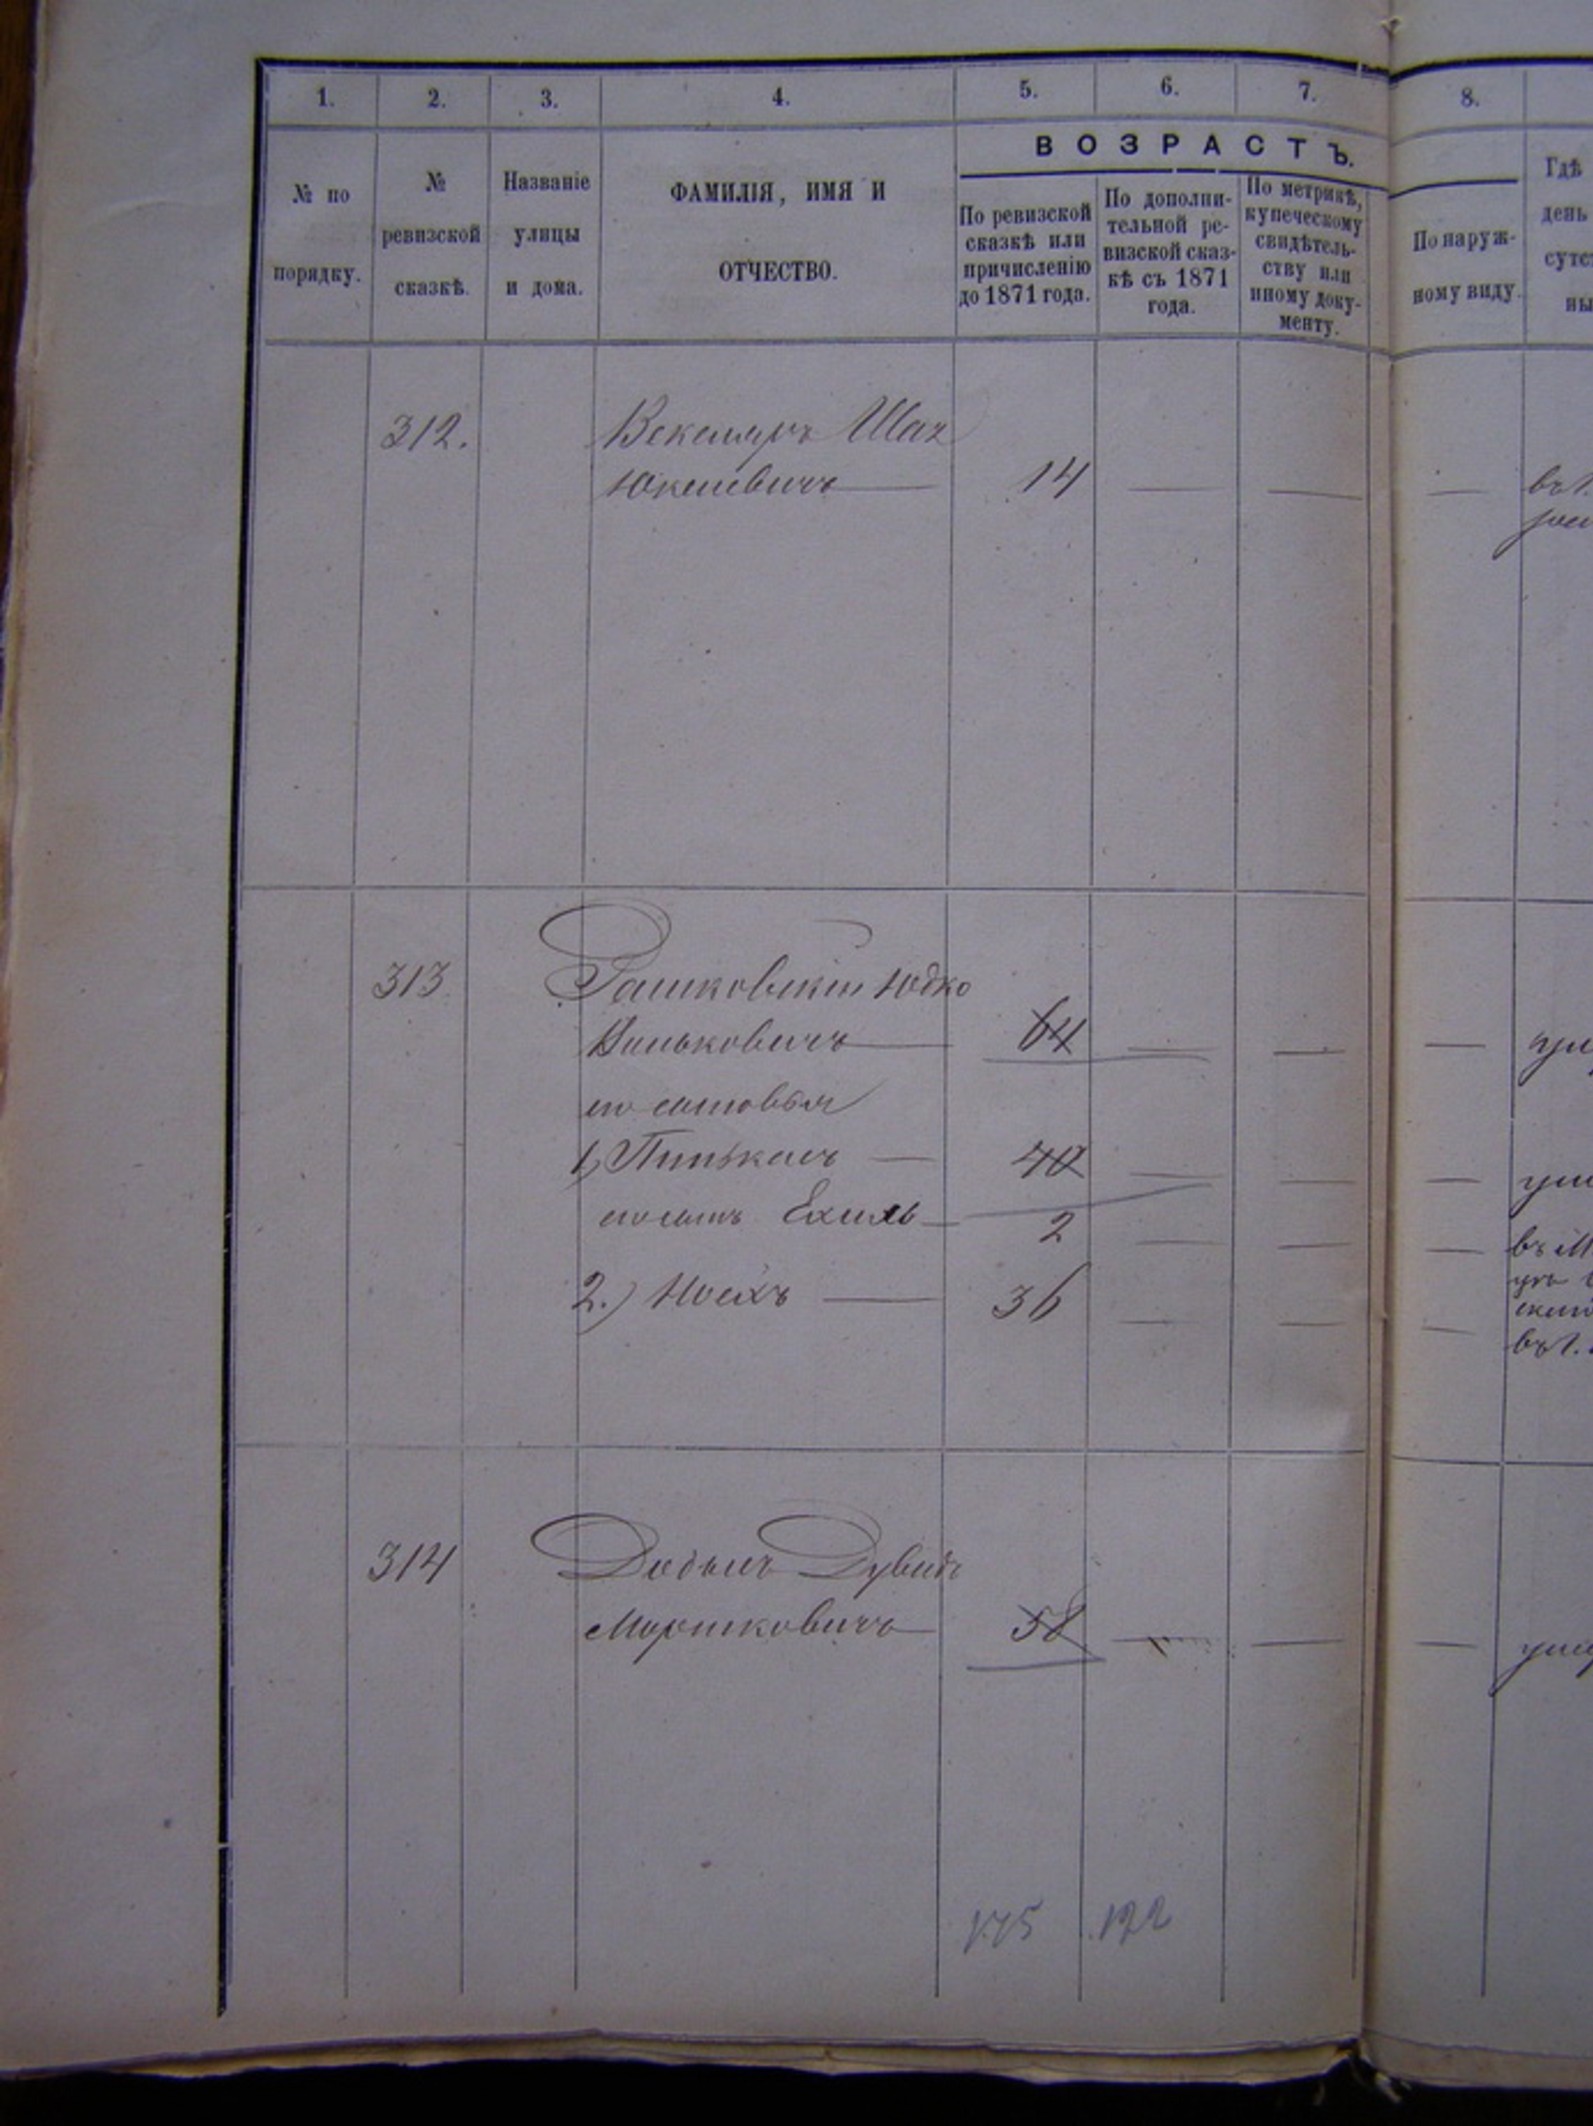 1. 2. 3. 4. 5. 6. 7. 8.
ВОЗРАСТЪ.
№ по порядку.
№ ревизской сказкѣ.
Названіе улицы и дома.
ФАМИЛІЯ, ИМЯ И ОТЧЕСТВО.
По ревизской сказкѣ или причисленію до 1871 года.
По дополни-тельной ре-визской сказ-кѣ съ 1871 года.
По метрикѣ, купеческому свидѣтель-ству или иному доку-менту.
По наруж-ному виду.
Гдѣ
день
сутст
ны
312. Векслеръ
14 — — —
313 Рашковскій Юдко
Пиньковичъ — 64 — — —
его сыновья
1, Пинькасъ — 40 — — —
его сынъ Ехиль — 2 — — —
2.) Іосъ — 36 — — —
314 Дувидъ
Мошковичъ — 58 — — —
175 122